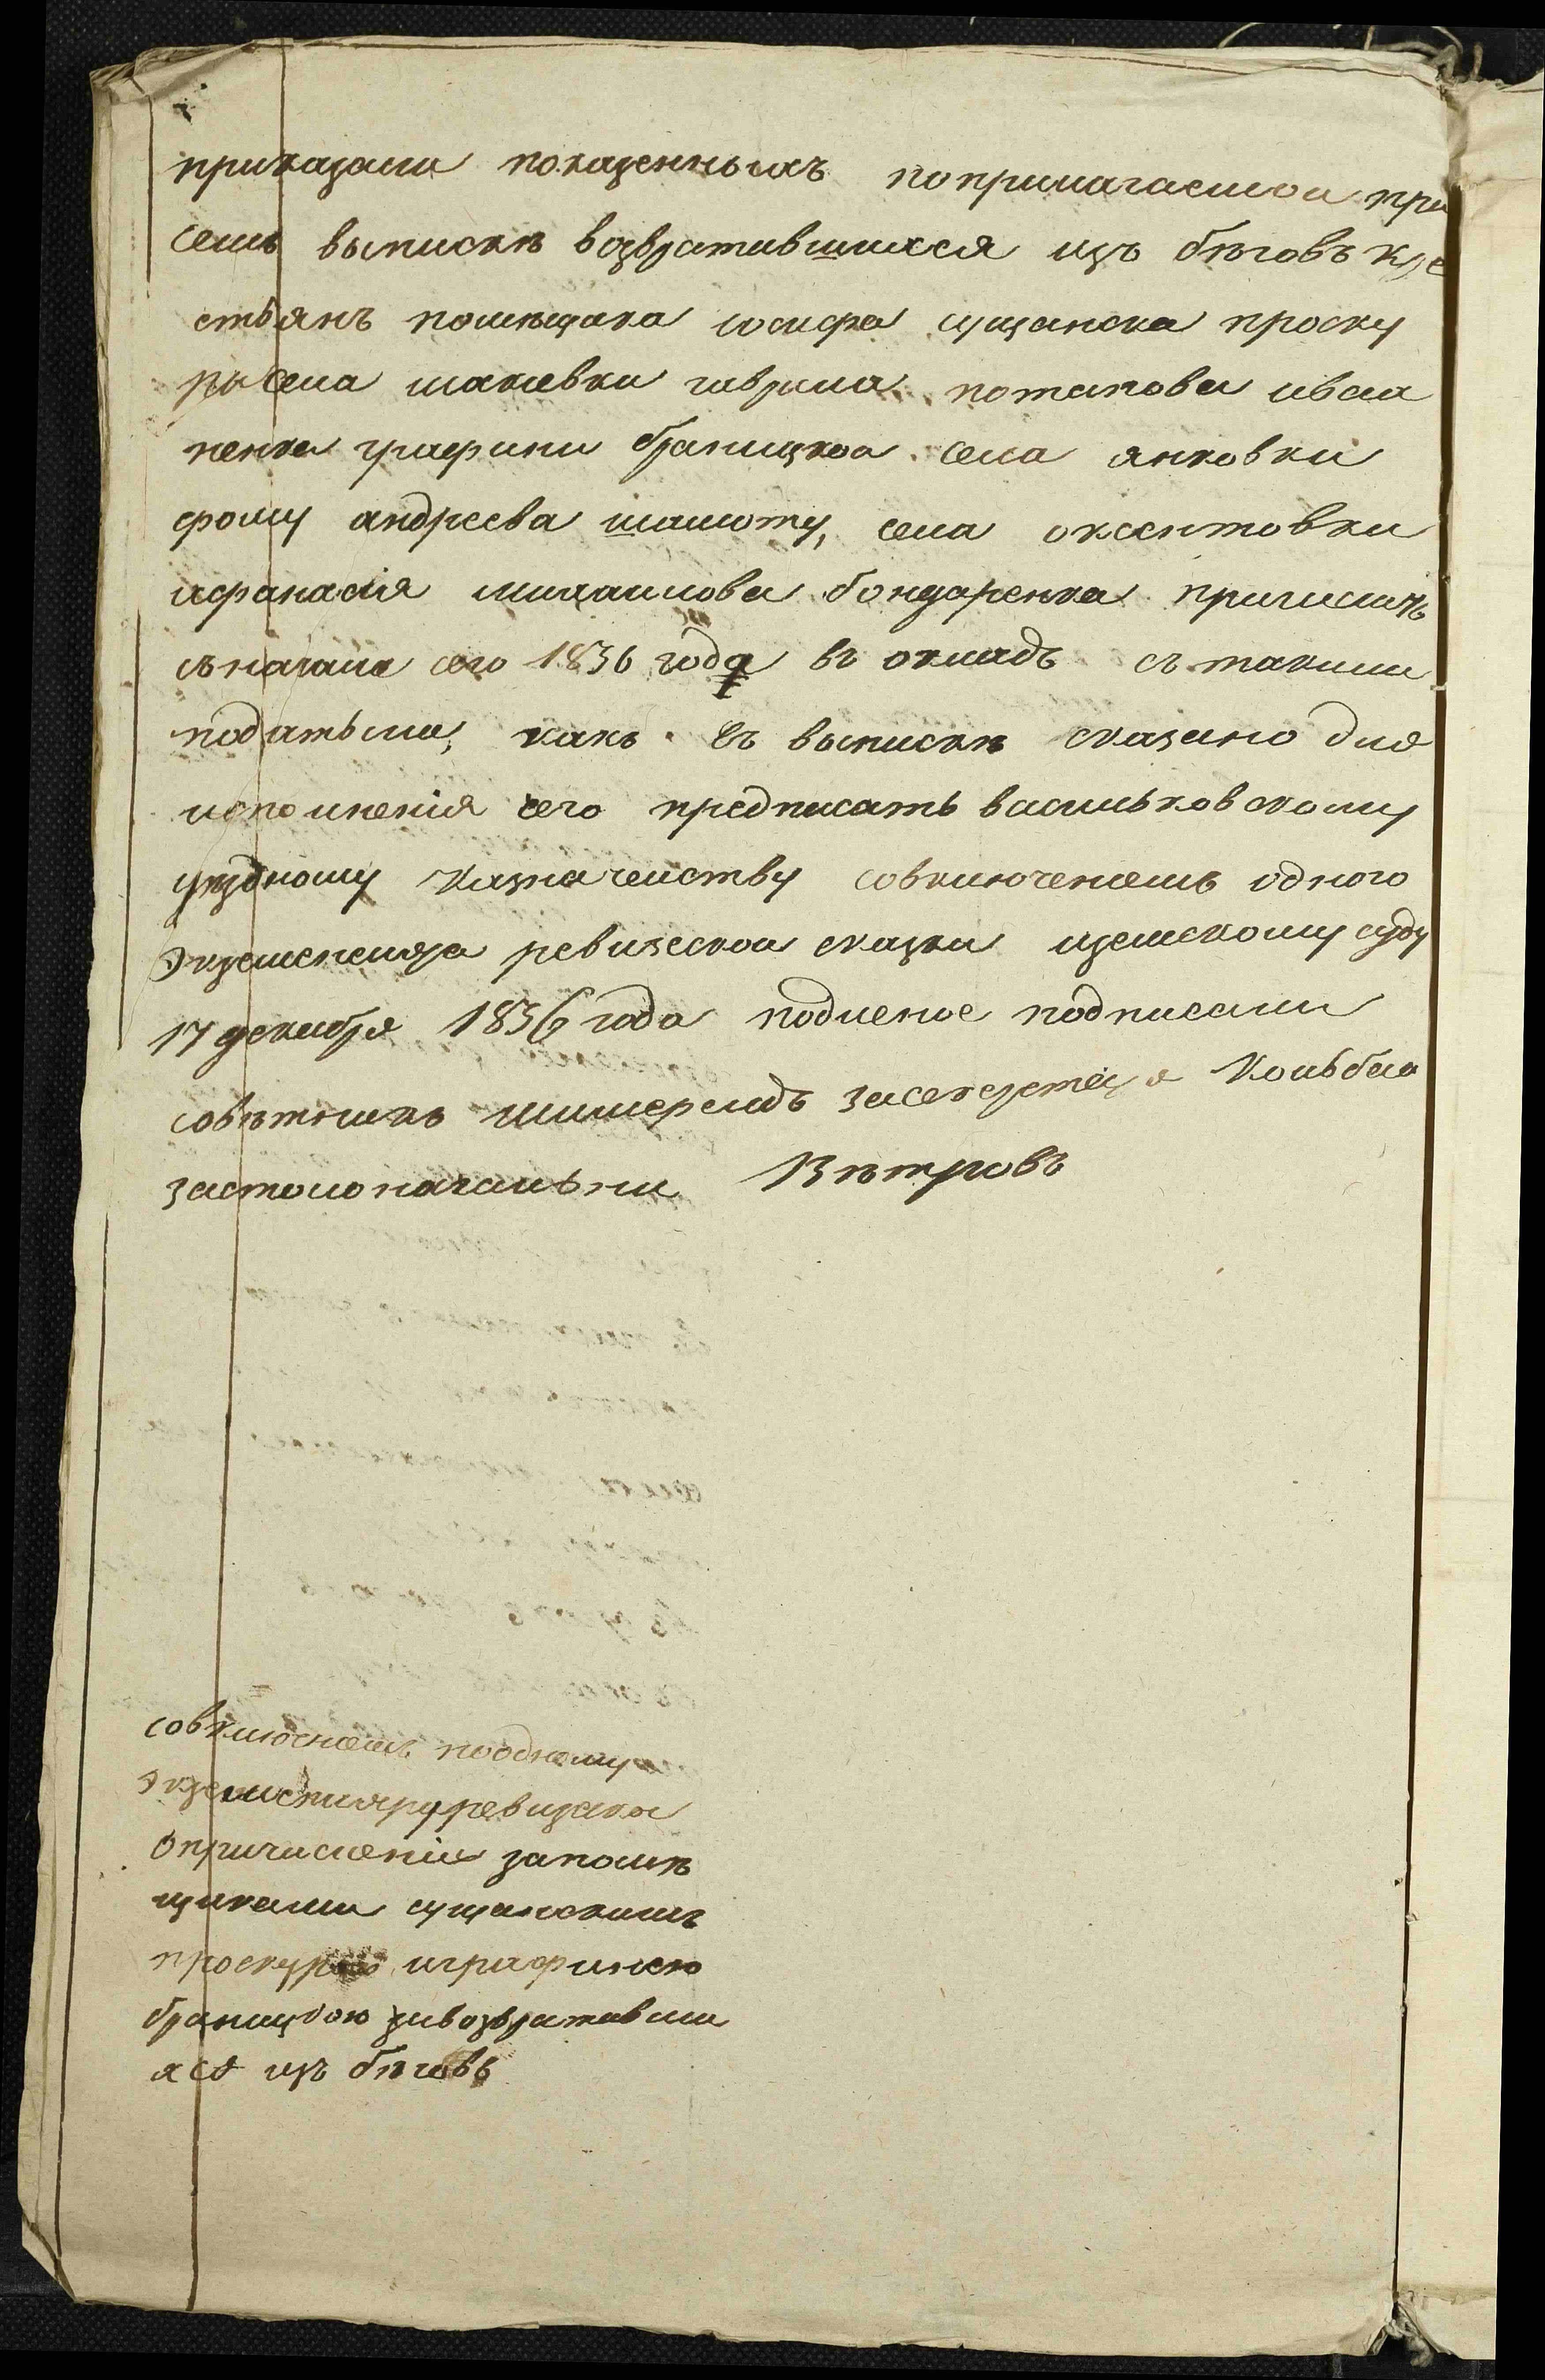 приказали показенныхъ поприлагаемои при
семъ выпискѣ возвратившихся изъ бѣговъ кре
стьянъ помѣщика iосифа сущанска проску
ры села макѣевки гаврила потапова иван
ченка графини браницкои села янковки
фому андреева шамоту, села оксентовки
афанасiя михаилова бондаренка причислить
съначала сего 1836 года въ окладъ стакими
податьми, какъ въ выпискѣ сказано для
исполненiя сего предписать васильковскому
уѣздному казначеиству совключенiемъ одного
экземпеляра ревизескои сказки иземскому суду
17 декабря 1836 года подленое подписали
совѣтникъ засекретаря Кольбе
застолоначальни Вѣтровъ
совключнемъ поодному
экземпиляру ревизскои
опричисленiи запомѣ
щиками сущанскимъ
проскурою играфинею
браницкою возвративши
хся изъ бѣговъ